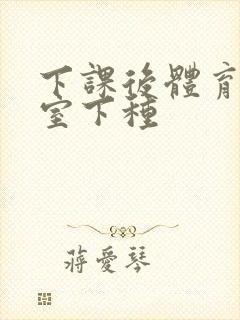 下課後體育
室下種
蔣愛琴